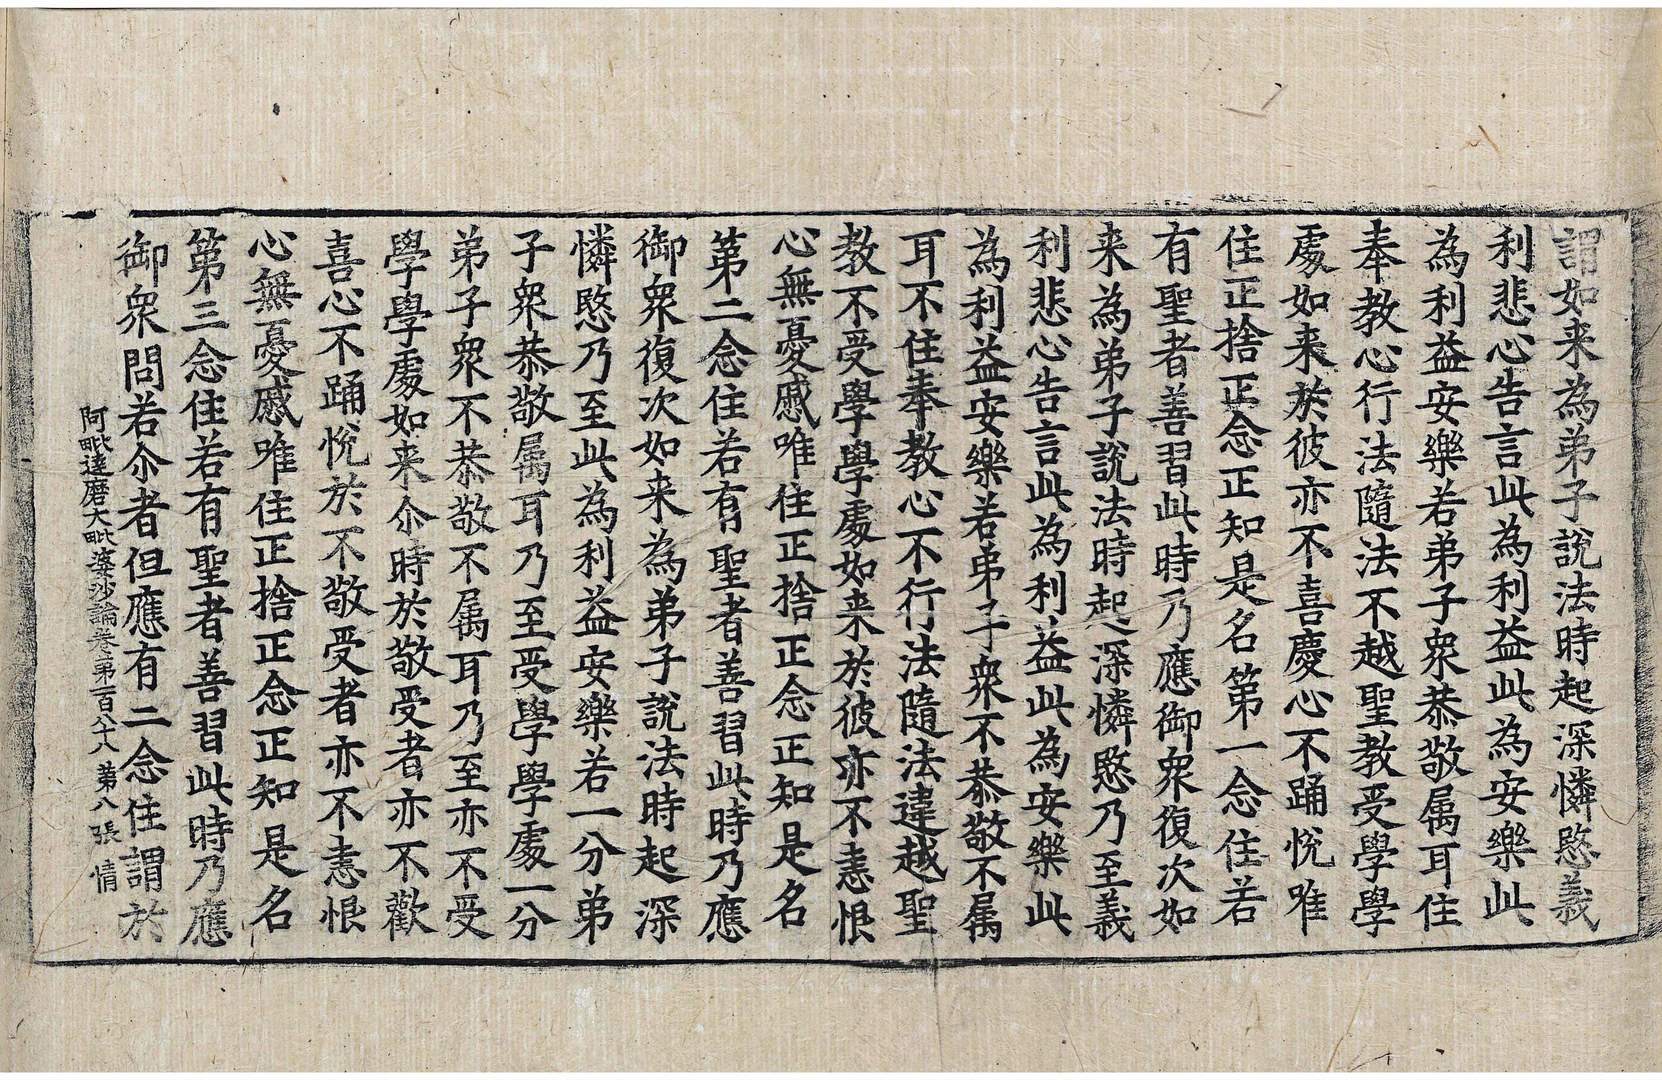 謂如来為弟子說法時起深憐愍義
利悲心告言此為利益此為安樂此
為利益安樂若弟子衆恭敬属耳住
奉教心行法隨法不越聖教受學學
處如来於彼亦不喜慶心不踊悅唯
住正捨正念正知是名第一念住若
有聖者善習此時乃應御衆復次如
来為弟子說法時起深憐愍乃至義
利悲心告言此為利益此為安樂此
為利益安樂若弟子衆不恭敬不属
耳不住奉教心不行法隨法違越聖
教不受學學處如来於彼亦不恚恨
心無憂慼唯住正捨正念正知是名
第二念住若有聖者善習此時乃應
御衆復次如来為弟子說法時起深
憐愍乃至此為利益安樂若一分弟
子衆恭敬属耳乃至受學學處一分
弟子衆不恭敬不属耳乃至亦不受
學學處如来尒時於敬受者亦不歡
喜心不踊悅於不敬受者亦不恚恨
心無憂慼唯住正捨正念正知是名
第三念住若有聖者善習此時乃應
御衆問若尒者但應有二念住謂於
阿毗達磨大毗婆沙論卷第一百八十八 第八張 情